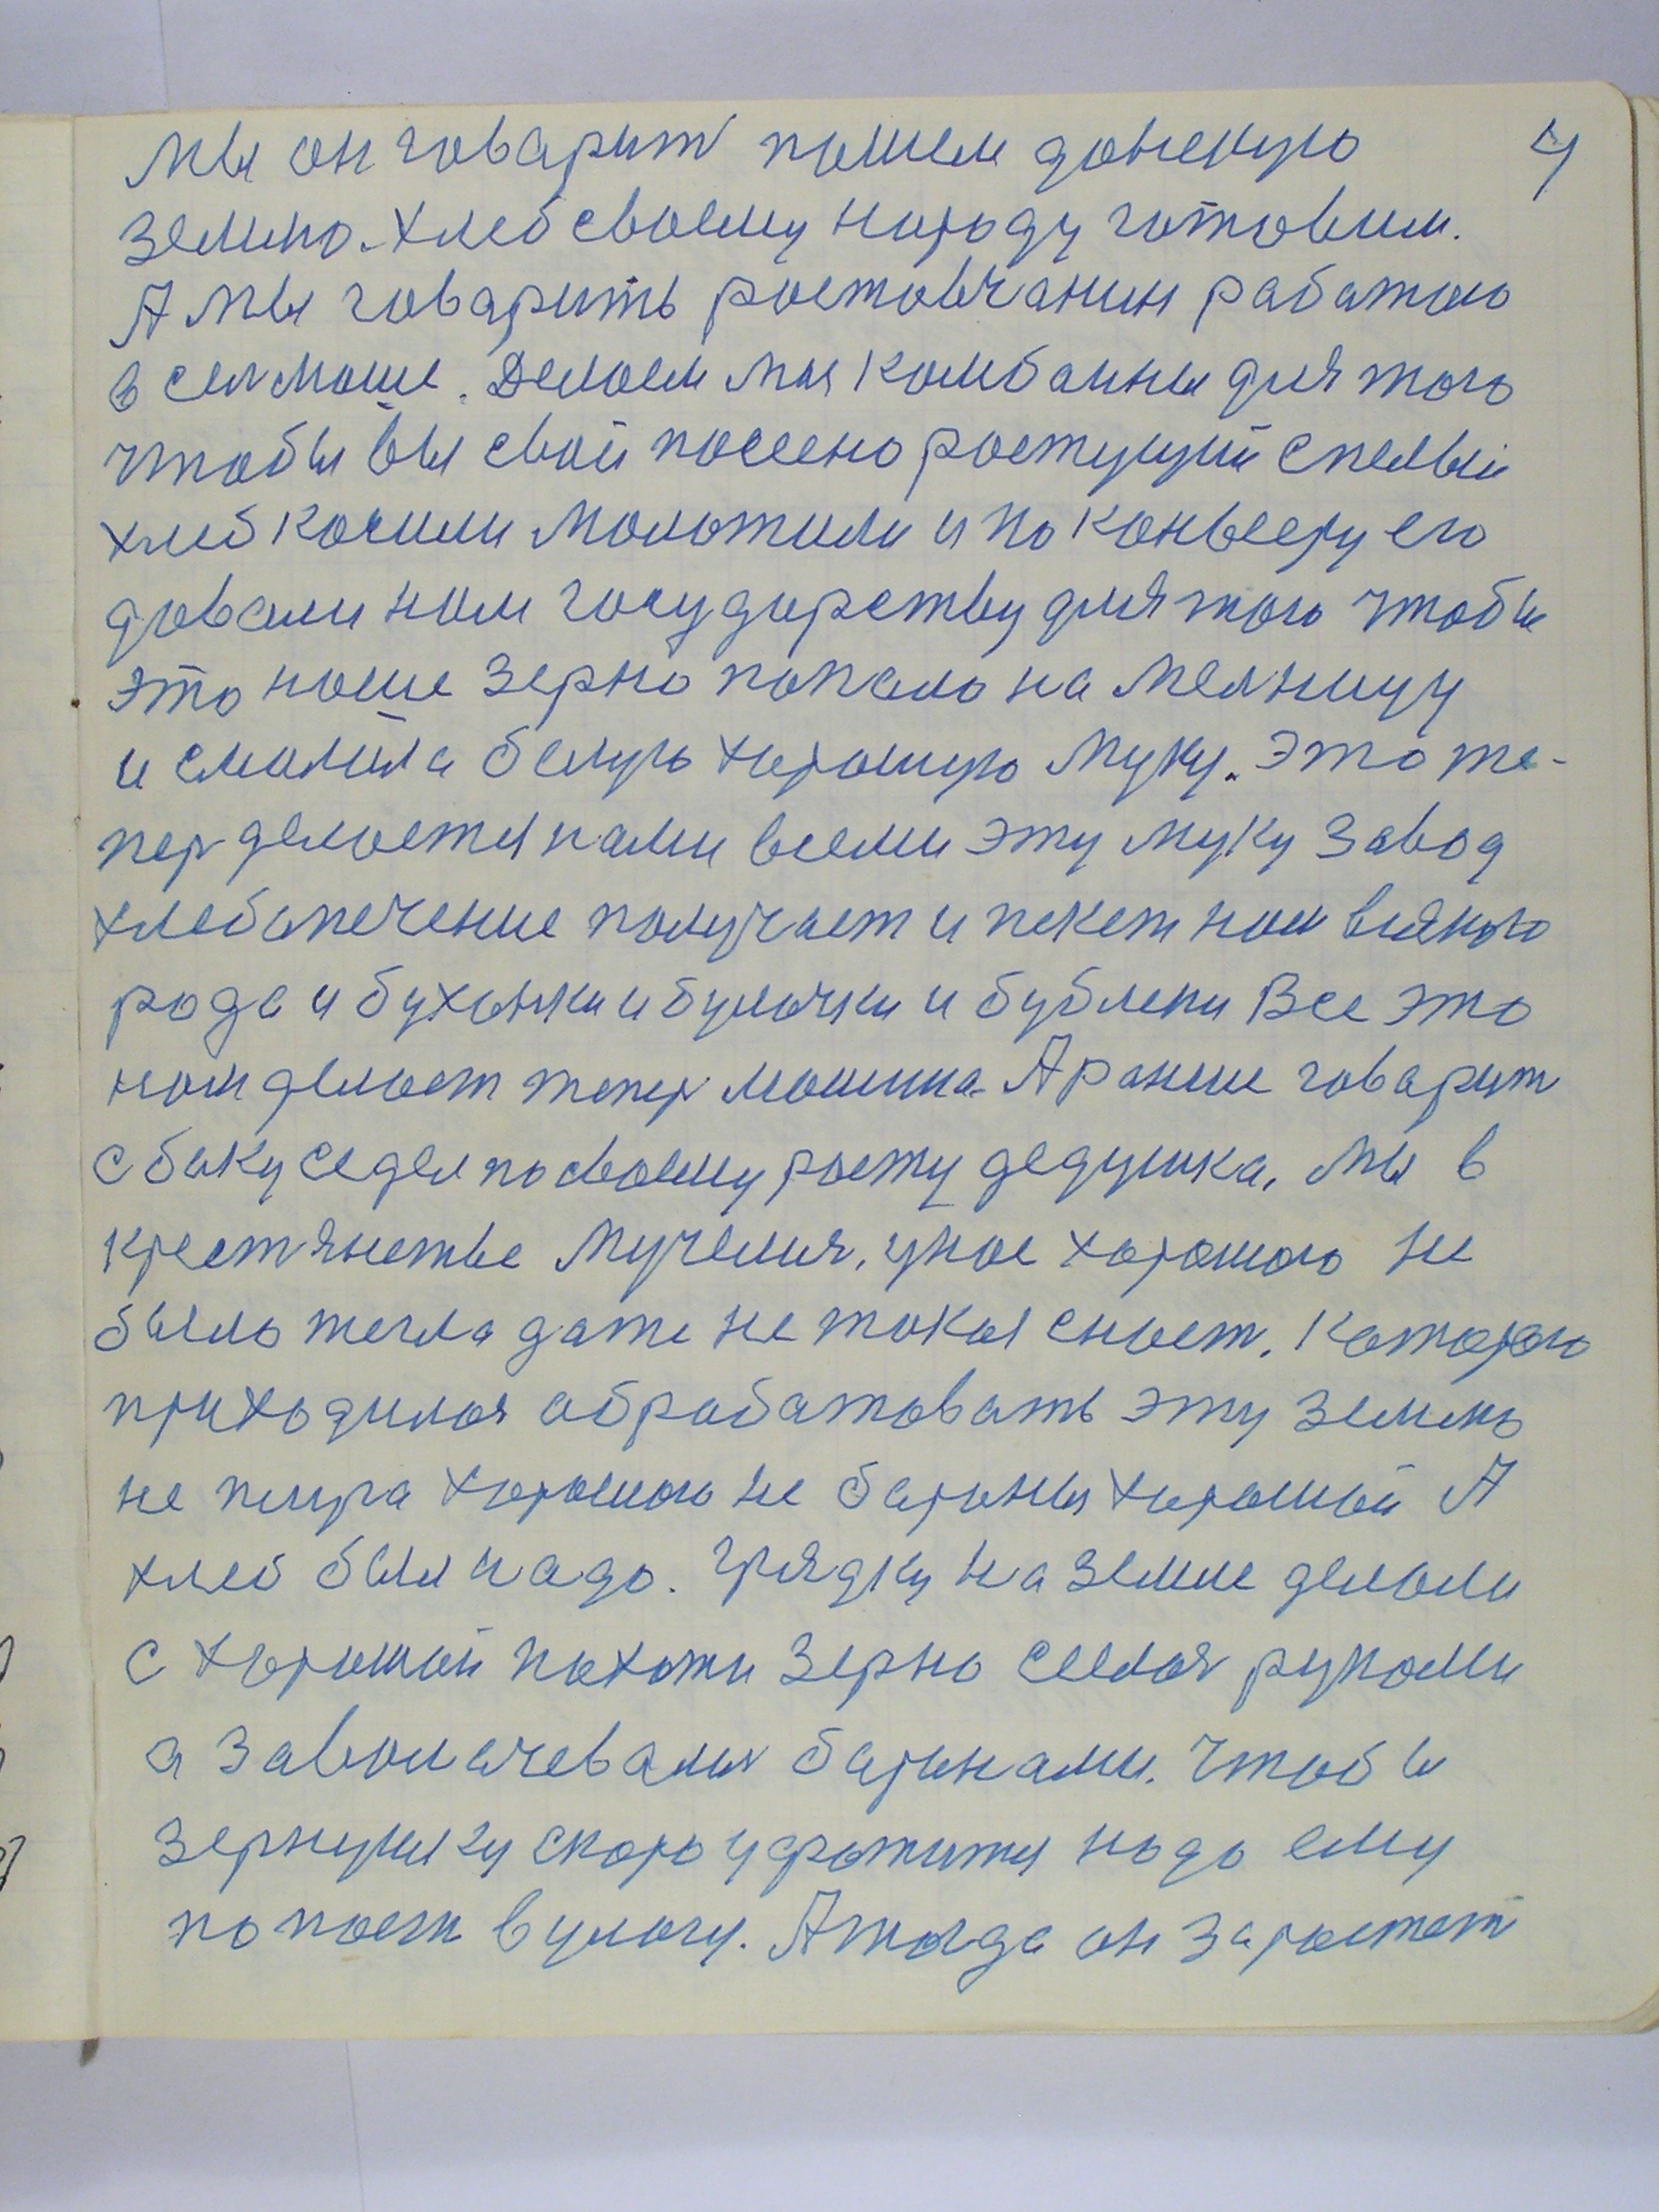 мы он говарит пашем донскую 4
землю. Хлеб своему народу готовим.
А мы говарить ростовчанин работаю
в селмаше. Делаем мы комбаины для того
чтобы вы свой посеено ростущий спелый
хлеб косили молотили и по конвееру его
давали нам государству для того чтобы
это наше зерно попало на мелницу
и смолола белую хорошую муку. Это те-
пер делается нами всеми эту муку завод
хлебопечение получает и пекет нам всякого
рода и буханки и булочки и бублеки Все это
нам делает тепер машина А ранше говарит
с баку седел по своему росту дедушка. Мы в
крестянстве мучелися, у нас хорошого не
было тегла даже не такая снаст. Которою
приходилося обработовать эту землю
не плуга хорошого не бароны хорошой А
хлеб был надо. Грядку на земле делали
с хорошой пахоты зерно сеялося руками
а заволачевалися баронами. Чтобы
зернушку скоро уродится надо ему
попаст в улогу. А тогда он заростет